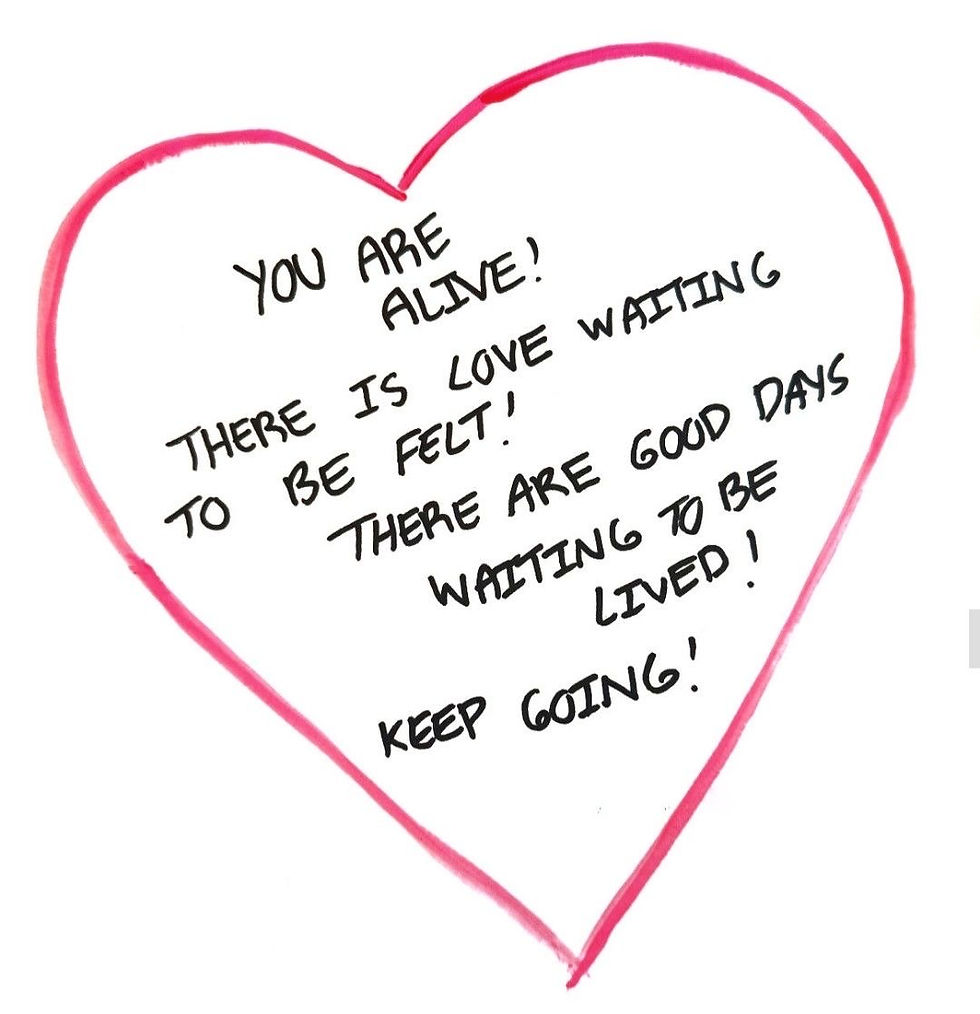 YOU ARE
ALIVE!
THERE IS LOVE WAITING
TO BE FELT!
THERE ARE GOOD DAYS
WAITING TO BE
LIVED!
KEEP GOING!